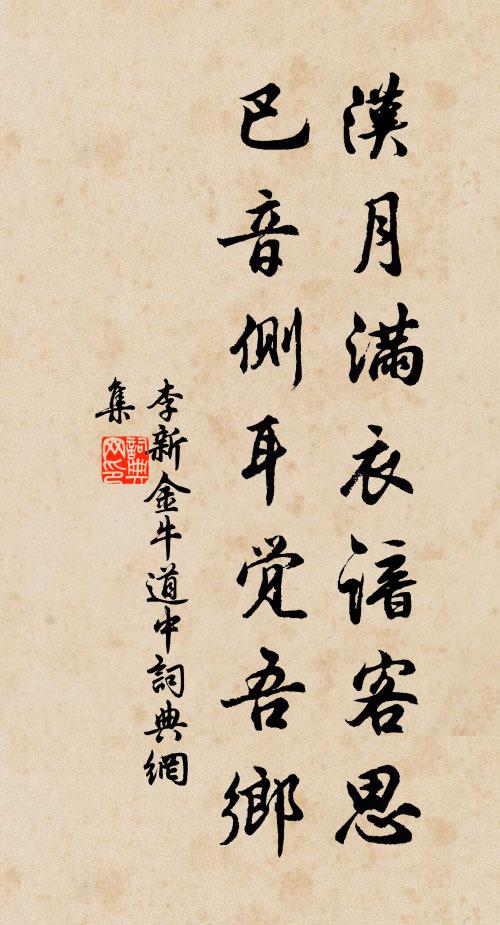 漢月滿衣諳客思
巴音側耳覺吾鄉
李新金牛道中詞典網
集
詞典網印